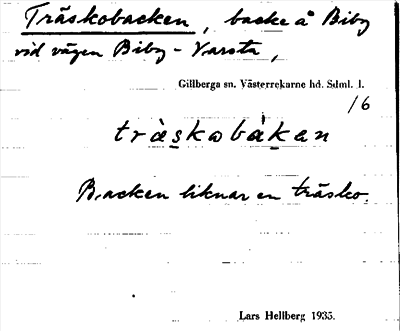 Träskobacken, backe å Biby
vid vägen Biby - Varsta,
Gillberga sn. Västerrekarne hd. Sdml. l.
16
tràskobákan
Backen liknar en träsko.
Lars Hellberg 1935.